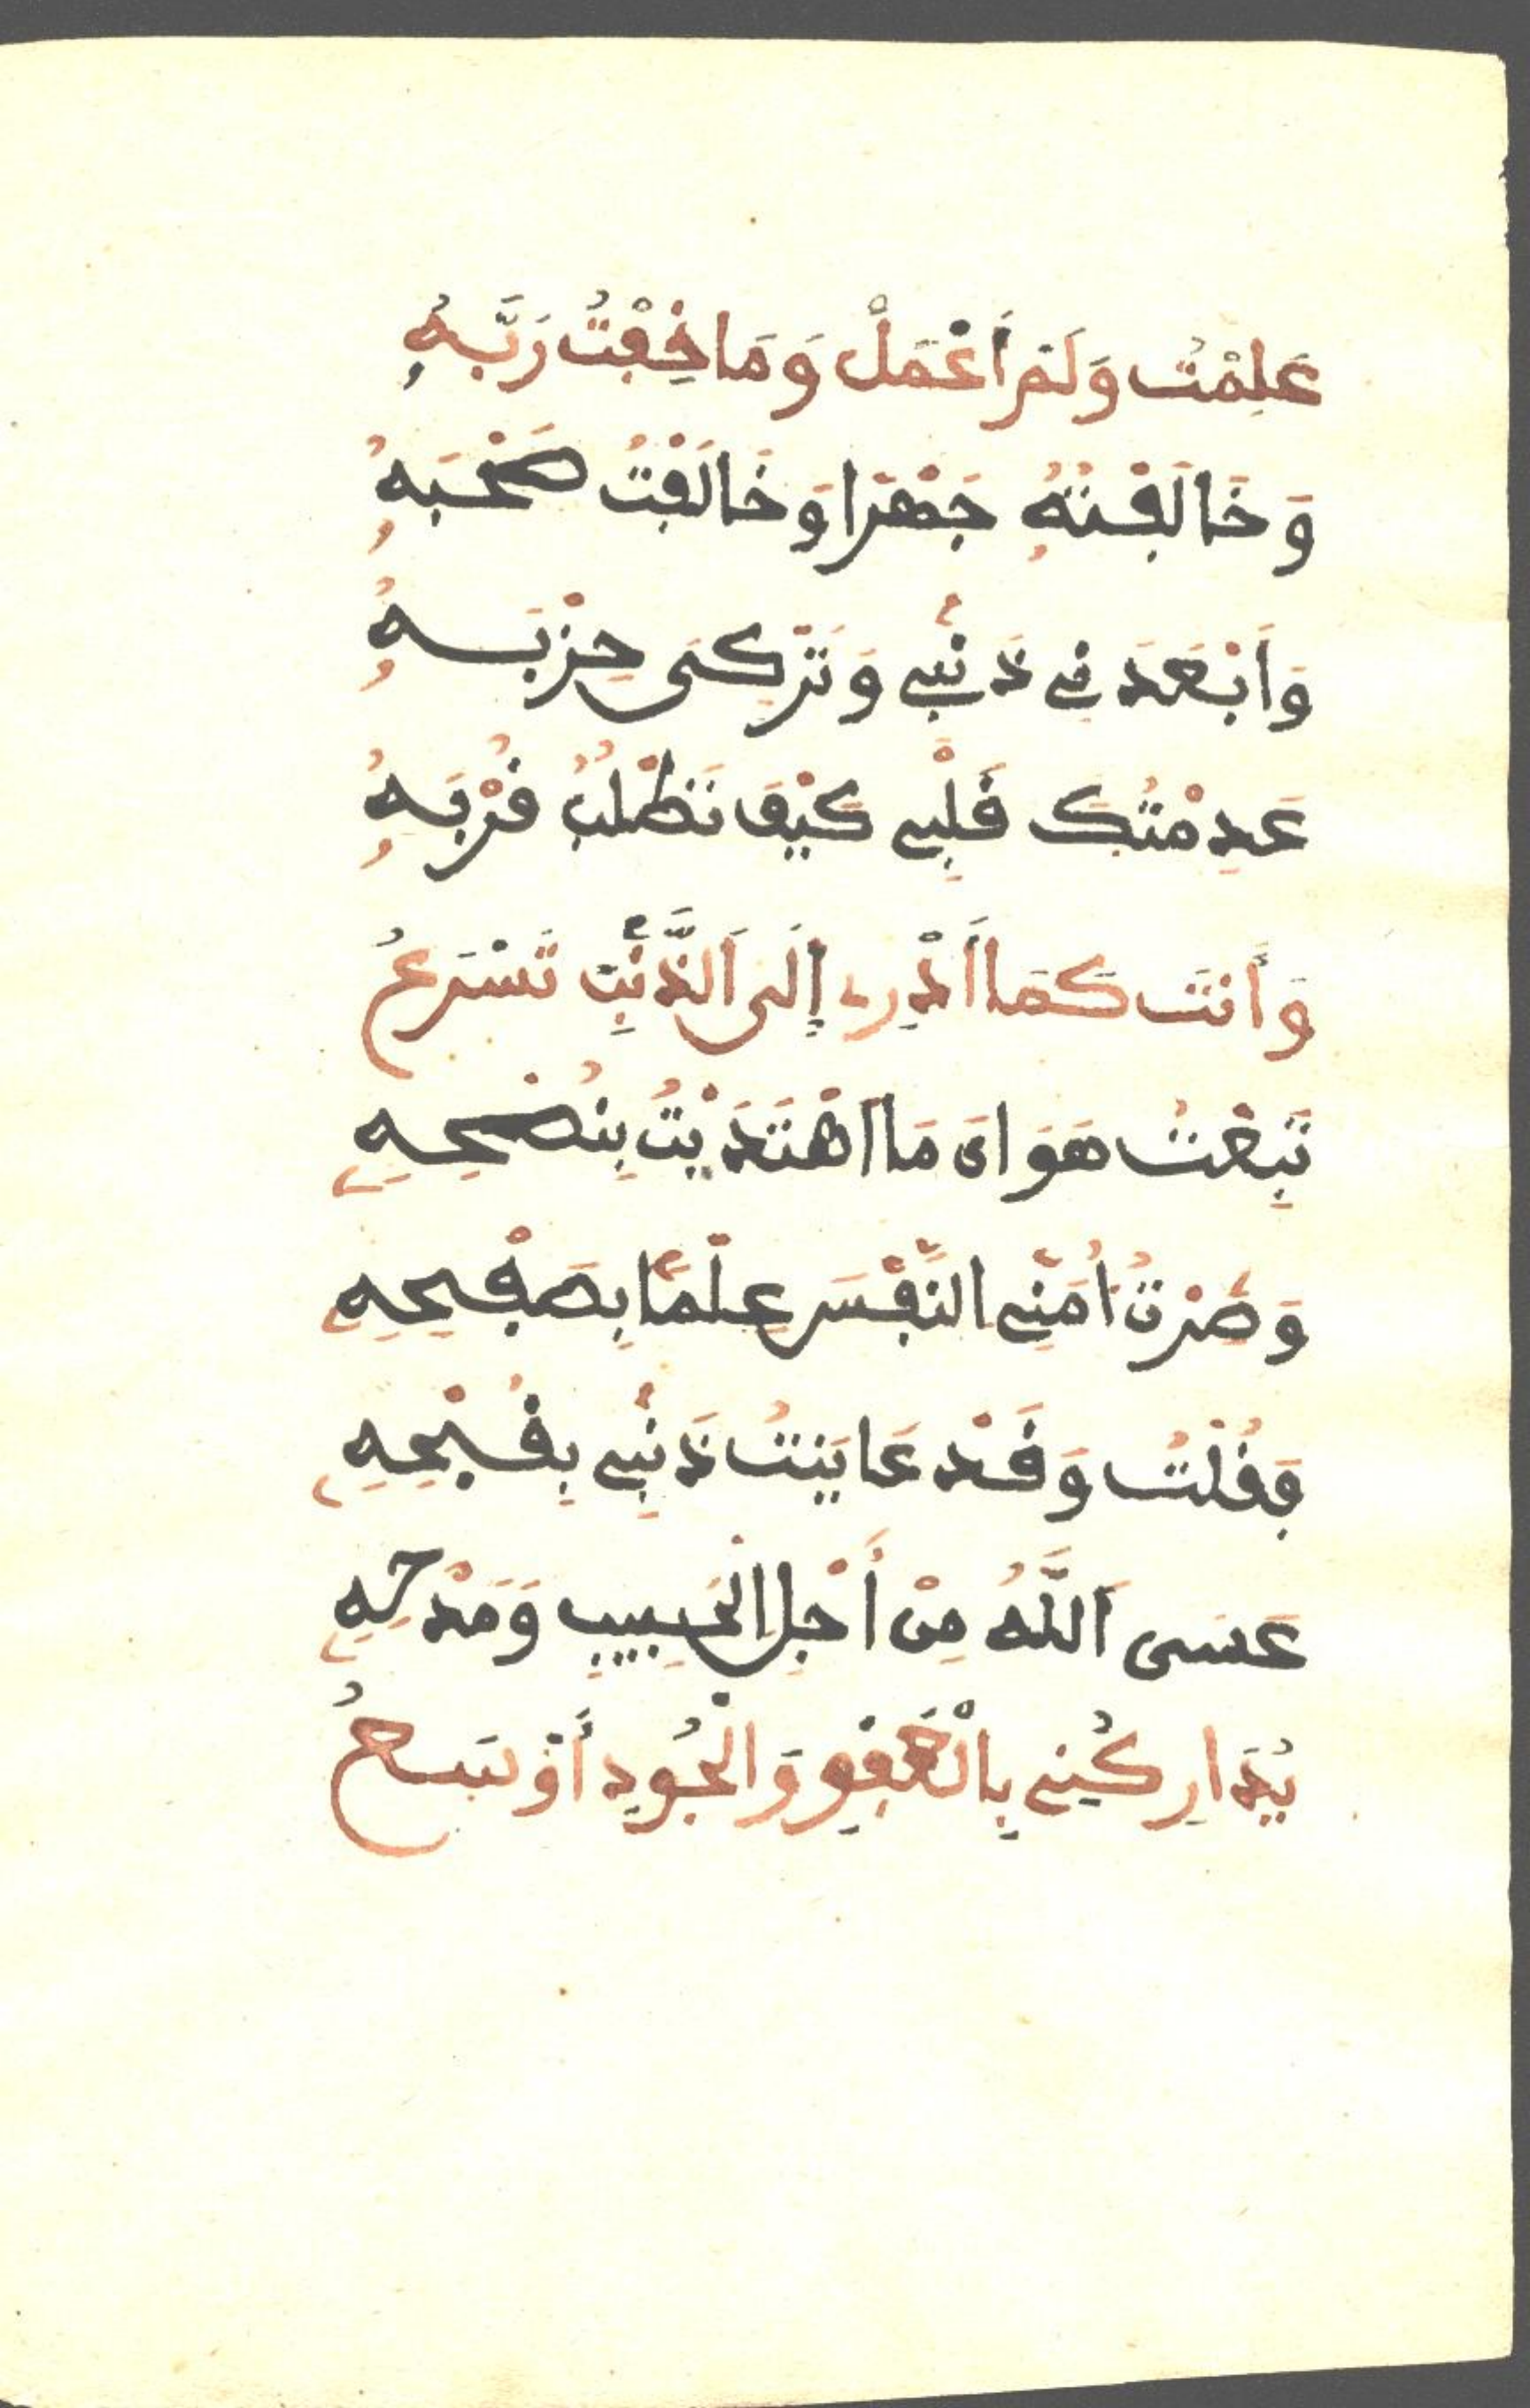 عَلِمْتُ وَلَمْ أَعْمَلْ وَمَا خِفْتُ رَبَّهُ
وَخَالَفْتُهُ جَهْرًا وَخَالَفْتُ صَحْبَهُ
وَأَبْعَدَنِي ذَنْبِي وَتَرْكِى حِزْبَهُ
عَدِمْتُكَ قَلْبِي كَيْفَ تَطْلُبُ قُرْبَهُ
وَأَنتَ كَمَا أَدْرِي إِلَى اَلذَّنْبِ تَسْرَعُ
تَبِعْتُ هَوَاىَ مَا اَهْتَدَيْتُ بِنُصْحِهِ
وَصِرْتُ أُمَنِّي النَّفْسَ عِلْمًا بِصَفْحِهِ
فَقُلْتُ وَقَدْ عَايَنتُ ذَنْبِي بِقُبْحِهِ
عَسَى اَللَّهُ مِنْ أَجْلِ الْحَبِيبِ وَمَدْحِهِ
يُدَارِكُنِي بِالْعَفْوِ وَالْجُودِ أَوْسَعُ